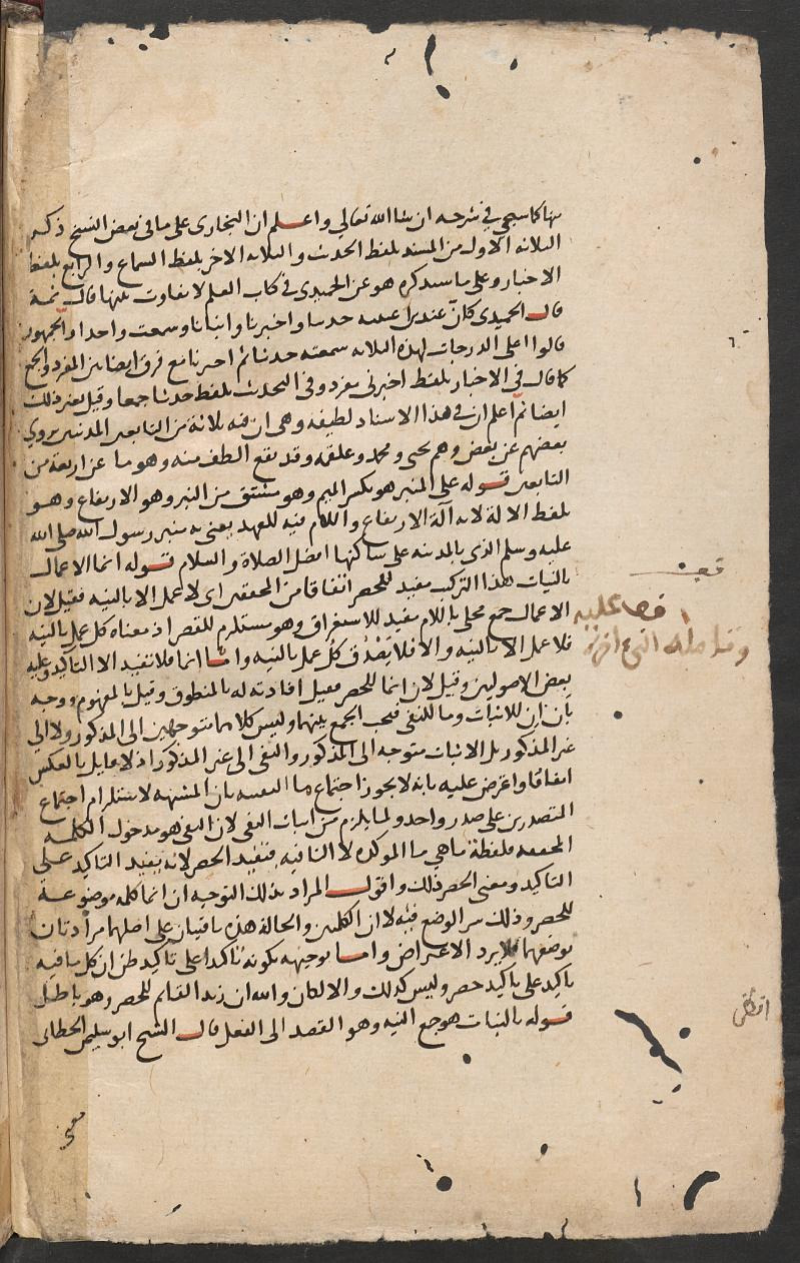 منها كما سيجي في شرحه ان شا الله تعالى واعلم ان البخارى على ما فى بعض النسخ ذكر
الثلاثه الاول من المسند بلفظ الحدث والثلاثه الاخر بلفظ السماع والرابع بلفظ
الاخبار وعلى ما سيذكره هو عن الحميدى فى كتاب العلم لا تفاوت بينها قال ثمة
قال الحميدى كان عند ابن عيينه حدثنا واخبرنا وانبانا وسمعت واحدا والجمهور
قالوا اعلى الدرجات لهذه الثلاثه سمعته حدثنا ثم اخبرنا مع فرق ايضا بين المفرد والجمع
كما قال فى الاخبار بلفظ اخبرنى مفرد وفى التحدث بلفظ حدثنا جمعا وقيل بغير ذلك
ايضا ثم اعلم ان فى هذا الاسناد لطيفه وهى ان فيه ثلاثة من التابعين المدنيين يروي
بعضهم عن بعض وهم يحيى ومحمد وعلقمه وقد يقع الطف منه وهو ما عن اربعة من
التابعين قوله على المنبر هو بكسر الميم وهو مشتق من النبر وهو الارتفاع وهو
بلفظ الالة لانه آلة الارتفاع واللام فيه للعهد يعنى به منبر رسول الله صلى الله
عليه وسلم الذى بالمدينه على ساكنها افضل الصلاة والسلام قوله انما الاعمال
بالنيات هذا التركيب مفيد للحصر اتفاقا من المحققين اى لا عمل الا بالنيه فقيل لان
الاعمال جمع محلى باللام مفيد للاستغراق وهو مستلزم للقصر اذ معناه كل عمل بالنيه
فلا عمل الا بالنيه والا فلا يصدق كل عمل بالنيه واما انما فلا تفيد الا التاكيد وعليه
بعض الاصوليين وقيل لان انما للحصر فقيل افادته له بالمنطوق وقيل بالمفهوم ووجه
بان ان للاثبات وما للنفى فيجب الجمع بينهما وليس كلاهما متوجهين الى المذكور ولا الى
غير المذكور بل الاثبات متوجه الى المذكور والنفى الى غير المذكور اذ لا قايل بالعكس
اتفاقا واعترض عليه بانه لا يجوز اجتماع ما النفيه بان المثبته لاستلزام اجتماع
التصدرين على صدر واحد ولما يلزم من اثبات النفى لان النفى هو مدخول الكلمه
المحققه فلفظة ما هي ما الموكده لا النافيه فتفيد الحصر لانه يفيد التاكيد على
التاكيد ومعنى الحصر ذلك واقول المراد بذلك التوجيه ان انما كلمه موضوعة
للحصر وذلك سر الوضع فيه لا ان الكلمتين والحالة هذه باقيتان على اصلهما مرادتان
بوضعهما فلا يرد الاعتراض واما توجيهه بكونه تاكيدا على تاكيد ظن ان كل ما فيه
تاكيد على تاكيد حصر وليس كذلك والا لكان والله ان زيدا لقائم للحصر وهو باطل
قوله بالنيات هو جمع النيه وهو القصد الى الفعل قال الشيخ ابو سليمن الخطابى
معنى